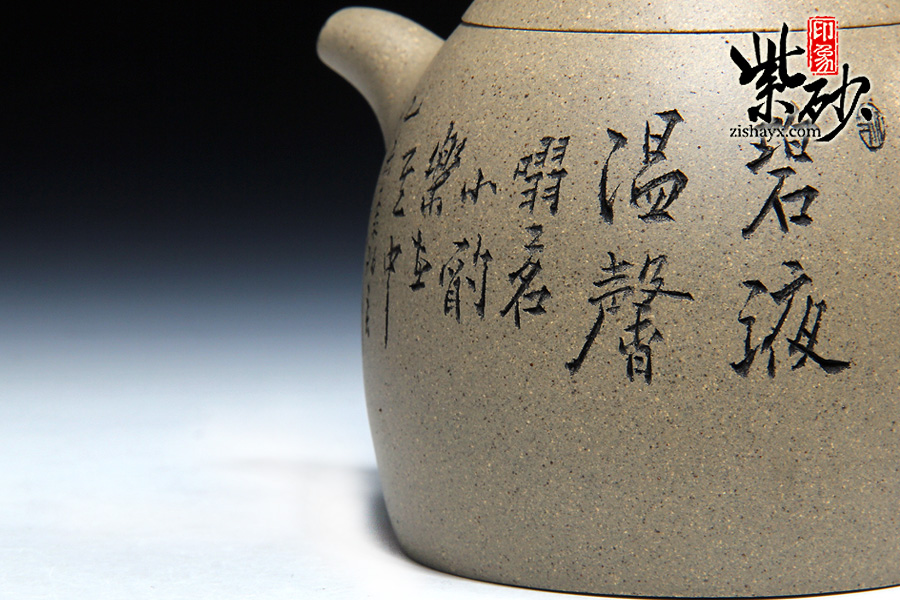 印象
紫砂
zishayx.com
碧液
温馨
啜茗
小酌
樂在
中